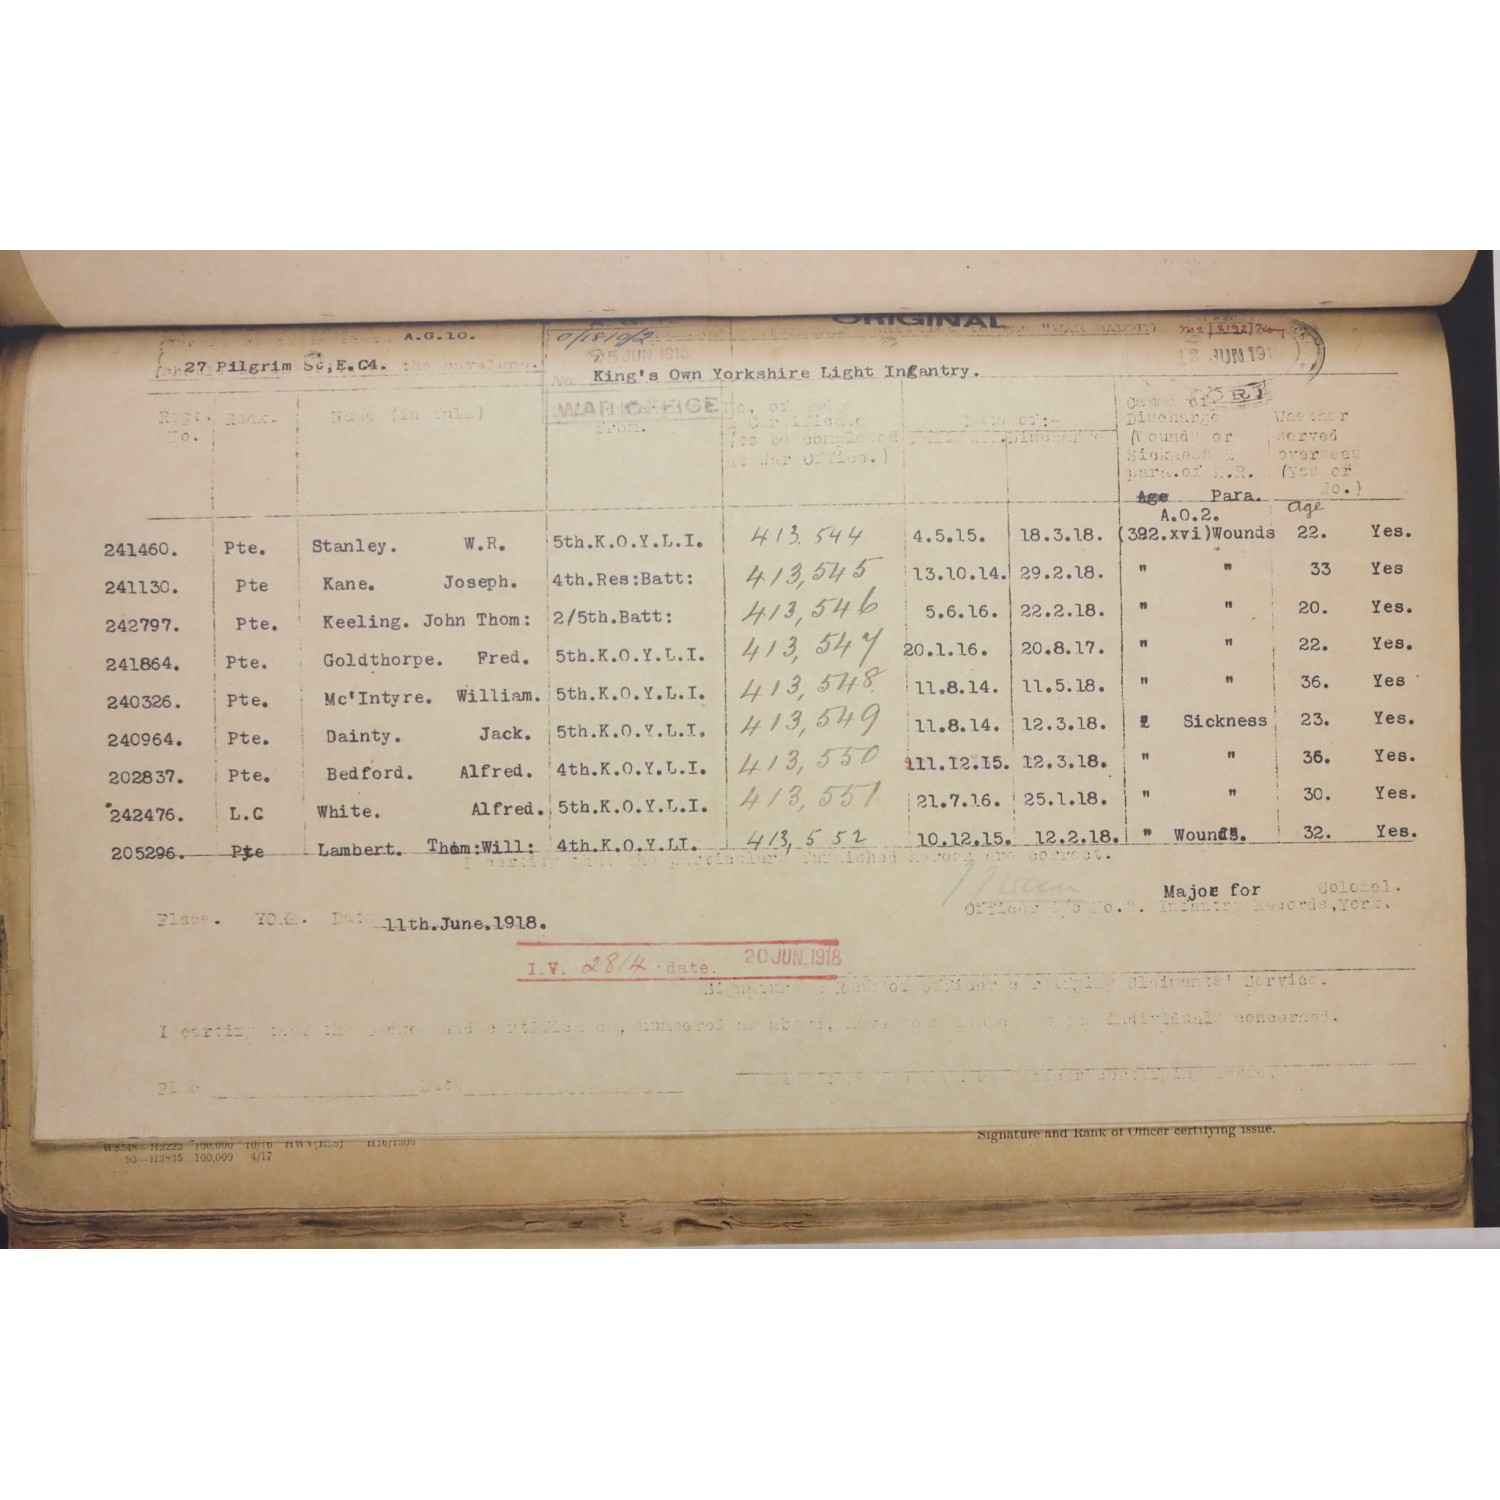 ORIGINAL
A.G.10.
5 JUN 1918
27 Pilgrim St,E.C4. the envelope.
No King's Own Yorkshire Light Ingantry.
WAR OFFICE
Regt. No. Rank. Name (in full) From. No. of Badge & Certificate (to be completed at War Office.) Date of:- Discharge Cause of Discharge (Wounds or Sickness & para.of K.R. Whether served overseas (Yes or No.)
Age Para. age
A.O.2.
241460. Pte. Stanley. W.R. 5th.K.O.Y.L.I. 413.544 4.5.15. 18.3.18. (392.xvi)Wounds 22. Yes.
241130. Pte Kane. Joseph. 4th.Res:Batt: 413,545 13.10.14. 29.2.18. " " 33 Yes
242797. Pte. Keeling. John Thom: 2/5th.Batt: 413,546 5.6.16. 22.2.18. " " 20. Yes.
241864. Pte. Goldthorpe. Fred. 5th.K.O.Y.L.I. 413,547 20.1.16. 20.8.17. " " 22. Yes.
240326. Pte. Mc'Intyre. William. 5th.K.O.Y.L.I. 413,548 11.8.14. 11.5.18. " " 36. Yes
240964. Pte. Dainty. Jack. 5th.K.O.Y.L.I. 413,549 11.8.14. 12.3.18. " Sickness 23. Yes.
202837. Pte. Bedford. Alfred. 4th.K.O.Y.L.I. 413,550 11.12.15. 12.3.18. " " 36. Yes.
242476. L.C White. Alfred. 5th.K.O.Y.L.I. 413,551 21.7.16. 25.1.18. " " 30. Yes.
205296. Pte Lambert. Thom:Will: 4th.K.O.Y.LI. 413,552 10.12.15. 12.2.18. " Wounds. 32. Yes.
I certify that the particulars furnished hereon are correct.
Major for Colonel.
Officer i/c No.2. Infantry Records,York.
Place. YORK. Date 11th.June.1918.
I.V. 2814 date. 20 JUN.1918
Signature & Rank of Officer Claimants' Service.
I certify that the badges and certificates, numbered as above, have been issued to the individuals concerned.
Place Date
Signature and Rank of Officer certifying issue.
W8548—H2222 100,000 10/16 HWV(R25) H16/1306
93—H3835 100,000 4/17